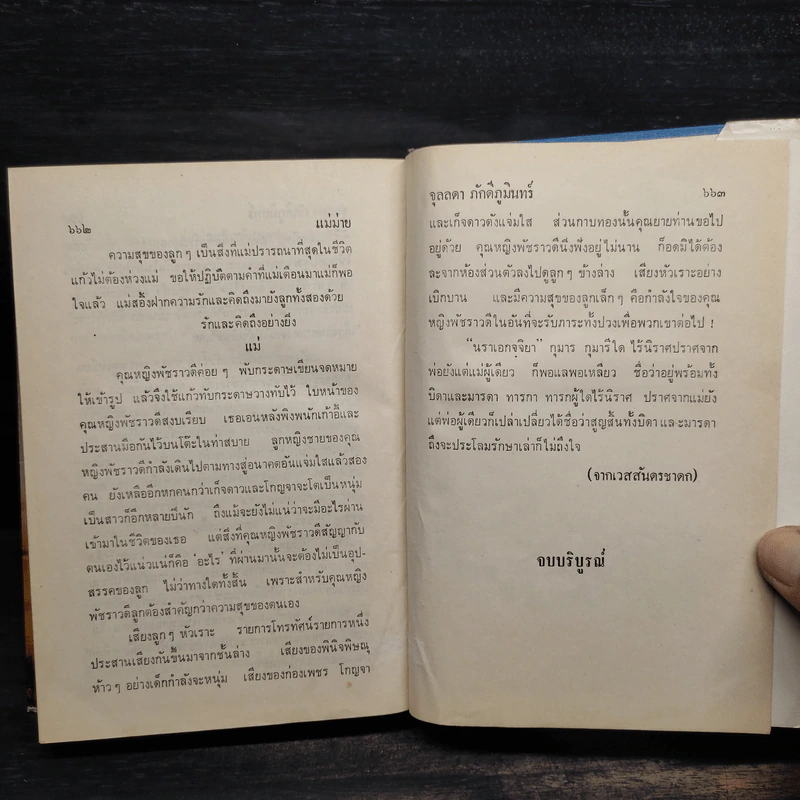 ๖๖๒ แม่ม่าย
ความสุขของลูกๆ เป็นสิ่งที่แม่ปรารถนาที่สุดในชีวิต
แก้วไม่ต้องห่วงแม่ ขอให้ปฏิบัติตามคำที่แม่เตือนมาแม่ก็พอ
ใจแล้ว แม่สอิ้งฝากความรักและคิดถึงมายังลูกทั้งสองด้วย
รักและคิดถึงอย่างยิ่ง
แม่
คุณหญิงพัชราวดีค่อยๆ พับกระดาษเขียนจดหมาย
ให้เข้ารูป แล้วจึงใช้แก้วทับกระดาษวางทับไว้ ใบหน้าของ
คุณหญิงพัชราวดีสงบเรียบ เธอเอนหลังพิงพนักเก้าอี้และ
ประสานมือกันไว้บนโต๊ะในท่าสบาย ลูกหญิงชายของคุณ
หญิงพัชราวดีกำลังเดินไปตามทางสู่อนาคตอันแจ่มใสแล้วสอง
คน ยังเหลืออีกหกคนกว่าเก็จดาวและโกญจาจะโตเป็นหนุ่ม
เป็นสาวก็อีกหลายปีนัก ถึงแม้จะยังไม่แน่ว่าจะมีอะไรผ่าน
เข้ามาในชีวิตของเธอ แต่สิ่งที่คุณหญิงพัชราวดีสัญญากับ
ตนเองไว้แน่วแน่ก็คือ 'อะไร' ที่ผ่านมานั้นจะต้องไม่เป็นอุป-
สรรคของลูก ไม่ว่าทางใดทั้งสิ้น เพราะสำหรับคุณหญิง
พัชราวดีลูกต้องสำคัญกว่าความสุขของตนเอง
เสียงลูกๆ หัวเราะ รายการโทรทัศน์รายการหนึ่ง
ประสานเสียงกันขึ้นมาจากชั้นล่าง เสียงของพินิจพิษณุ
ห้าวๆ อย่างเด็กกำลังจะหนุ่ม เสียงของก่องเพชร โกญจา
จุลลดา ภักดีภูมินทร์ ๖๖๓
และเก็จดาวดังแจ่มใส ส่วนกาบทองนั้นคุณยายท่านขอไป
อยู่ด้วย คุณหญิงพัชราวดีนึ่งฟังอยู่ไม่นาน ก็อดมิได้ต้อง
ละจากห้องส่วนตัวลงไปดูลูกๆ ข้างล่าง เสียงหัวเราะอย่าง
เบิกบาน และมีความสุขของลูกเล็กๆ คือกำลังใจของคุณ
หญิงพัชราวดีในอันที่จะรับภาระทั้งปวงเพื่อพวกเขาต่อไป !
"นราเอกจฺจิยา" กุมาร กุมารีใด ไร้นิราศปราศจาก
พ่อยังแต่แม่ผู้เดียว ก็พอแลพอเหลียว ชื่อว่าอยู่พร้อมทั้ง
บิดาและมารดา ทารกา ทารกผู้ใดไร้นิราศ ปราศจากแม่ยัง
แต่พ่อผู้เดียวก็เปล่าเปลี่ยวได้ชื่อว่าสูญสิ้นทั้งบิดาและมารดา
ถึงจะประโลมรักษาเล่าก็ไม่ถึงใจ
(จากเวสสันดรชาดก)
จบบริบูรณ์